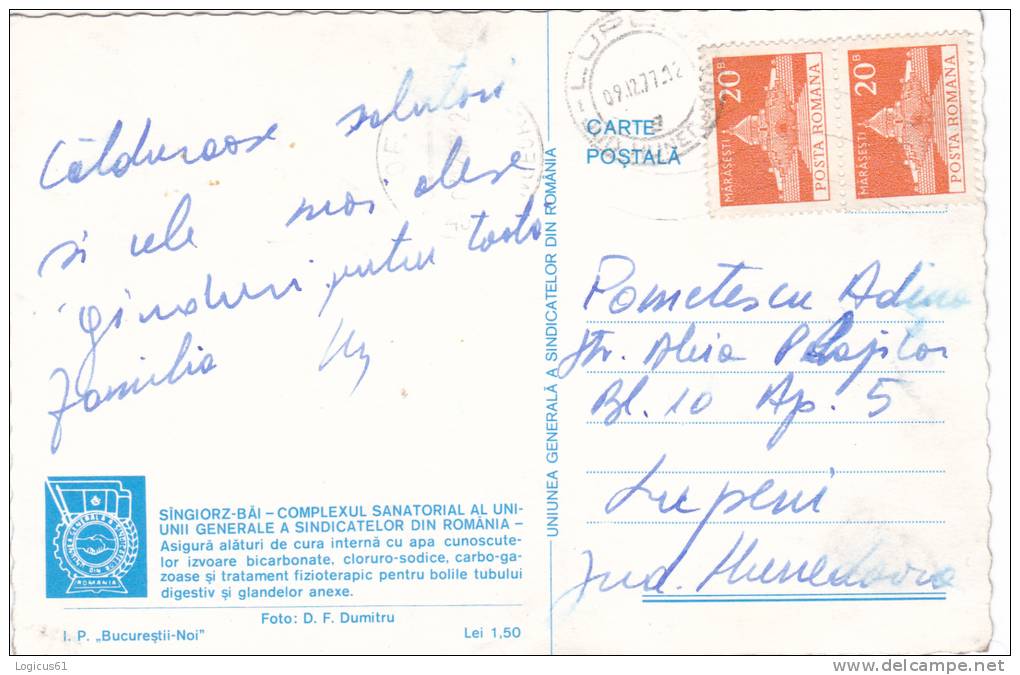 Călduroase salutări
și cele mai alese
gînduri pentru toată
familia
SÎNGIORZ-BĂI – COMPLEXUL SANATORIAL AL UNI-
UNII GENERALE A SINDICATELOR DIN ROMÂNIA –
Asigură alături de cura internă cu apa cunoscute-
lor izvoare bicarbonate, cloruro-sodice, carbo-ga-
zoase și tratament fizioterapic pentru bolile tubului
digestiv și glandelor anexe.
Foto: D. F. Dumitru
I. P. „Bucureștii-Noi”
Lei 1,50
ROMANIA
UNIUNEA GENERALĂ A SINDICATELOR DIN ROMÂNIA
CARTE
POȘTALĂ
LUPENI
09.12.77.12
20 B
MĂRĂȘEȘTI
POSTA ROMANA
20 B
MĂRĂȘEȘTI
POSTA ROMANA
Pometescu Adina
Str. Aleia Plopilor
Bl. 10 Ap. 5
Lupeni
Jud. Hunedoara
Logicus61
delcampe.net